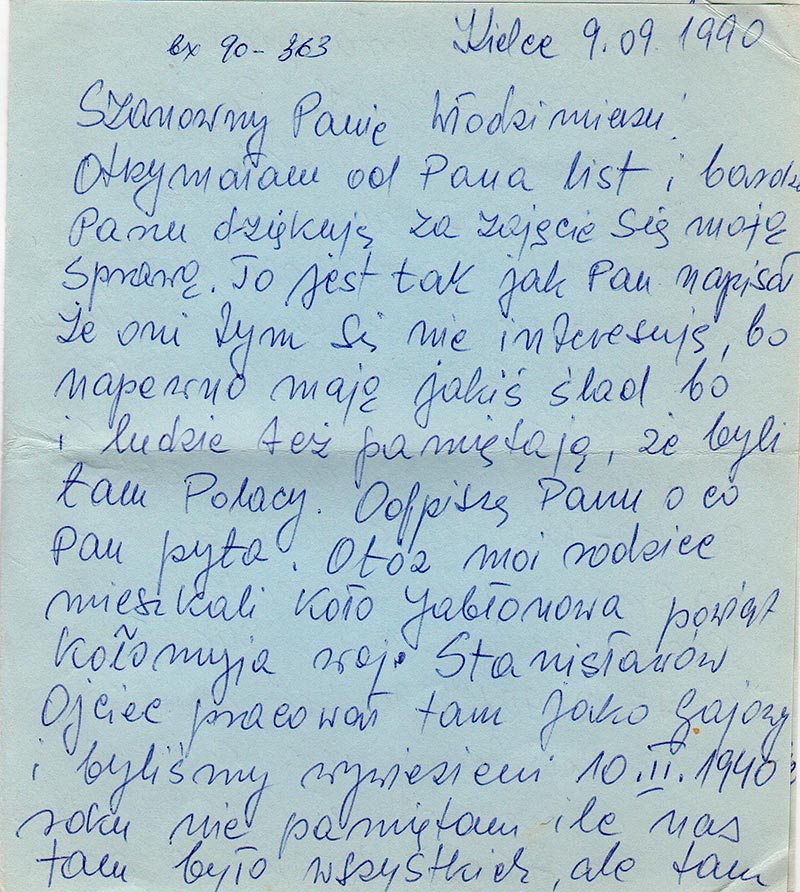 вх 90-363
Kielce 9.09.1990
Szanowny Panie Włodzimierzu!
Otrzymałam od Pana list i bardzo
Panu dziękuję za zajęcie się moją
sprawą. To jest tak jak Pan napisał
że oni tym się nie interesują, bo
napewno mają jakiś ślad bo
i ludzie też pamiętają, że byli
tam Polacy. Odpiszę Panu o co
Pan pyta. Otóż moi rodzice
mieszkali koło Jabłonowa powiat
Kołomyja woj. Stanisławów
Ojciec pracował tam jako gajowy
i byliśmy wywiezieni 10.II.1940
roku nie pamiętam ile nas
tam było wszystkich, ale tam